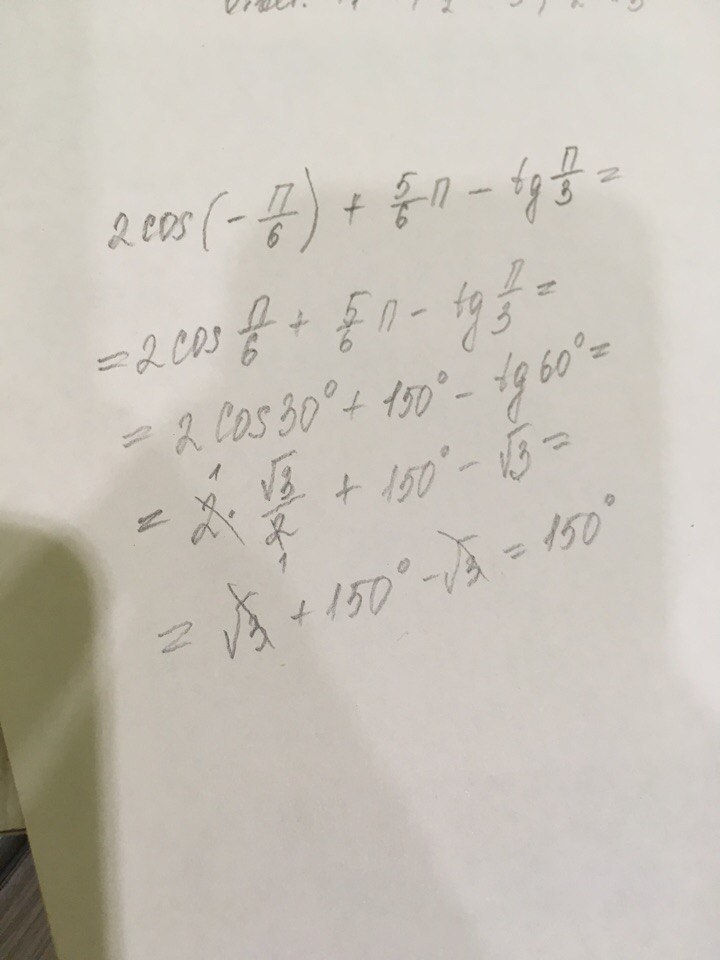 2cos(-П/6) + 5/6 П - tg П/3 =
= 2cos П/6 + 5/6 П - tg П/3 =
= 2cos30° + 150° - tg60° =
= 2 · √3/2 + 150° - √3 =
= √3 + 150° - √3 = 150°